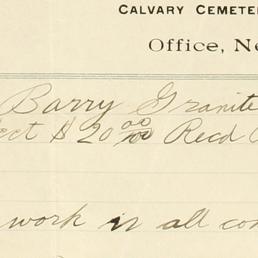 CALVARY CEMETE
Office, Ne
Barry Granite
ect $ 20 00/100 Recd
work in all con